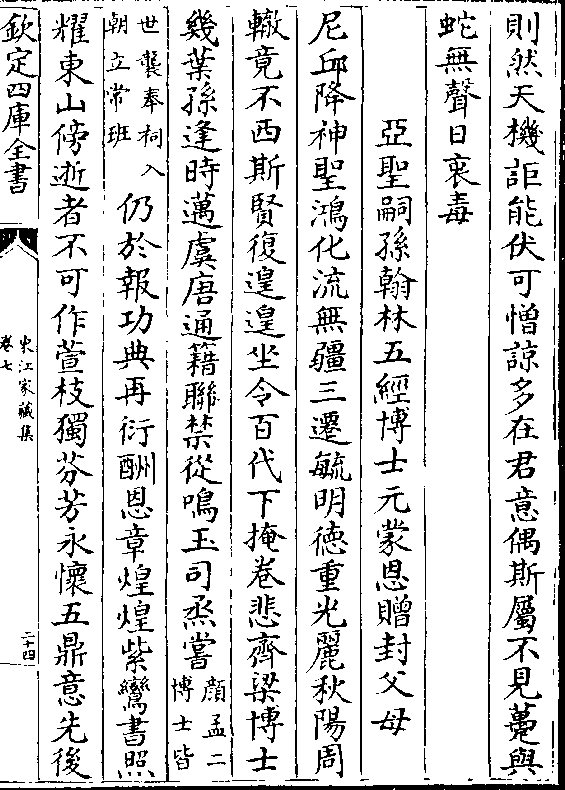 則然天機詎能伏可憎諒多在君意偶斯屬不見蠆與
蛇無聲日衷毒
亞聖嗣孫翰林五經博士元蒙恩贈封父母
尼丘降神聖鴻化流無疆三遷毓明徳重光麗秋陽周
轍竟不西斯賢復遑遑坐令百代下掩卷悲齊梁博士
幾葉孫逢時邁虞唐通籍聯禁從鳴玉司烝嘗顔孟二
博士皆
世襲奉祠入
朝立常班
仍於報功典再衍酬恩章煌煌紫鸞書照
耀東山傍逝者不可作萱枝獨芬芳永懷五鼎意先後
欽定四庫全書
東江家藏集
卷七
二十四